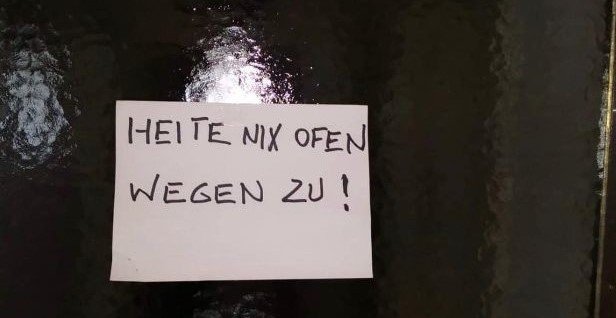 HEITE NIX OFEN
WEGEN ZU!